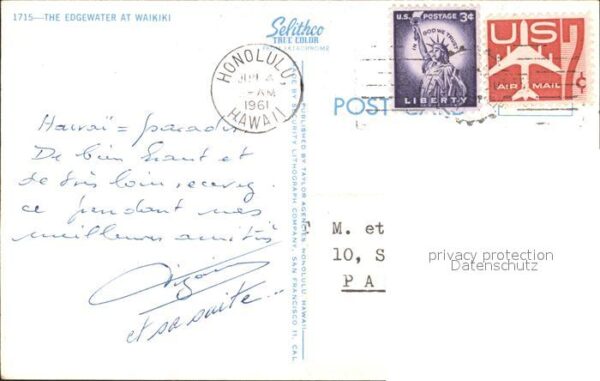 1715—THE EDGEWATER AT WAIKIKI
Selithco
TRUE COLOR
U.S. POSTAGE 3¢
IN GOD WE TRUST
LIBERTY
US
7¢
AIR MAIL
HONOLULU
AM
1961
HAWAII
POST CARD
Hawaï = paradis
De bien haut et
de très loin, recevez
ce pendant mes
meilleurs amitiés
et sa suite...
PUBLISHED BY TAYLOR AGENCIES, HONOLULU HAWAII
BY SECURITY LITHOGRAPH COMPANY, SAN FRANCISCO 11, CAL.
M. et
10, S
PA
privacy protection
Datenschutz